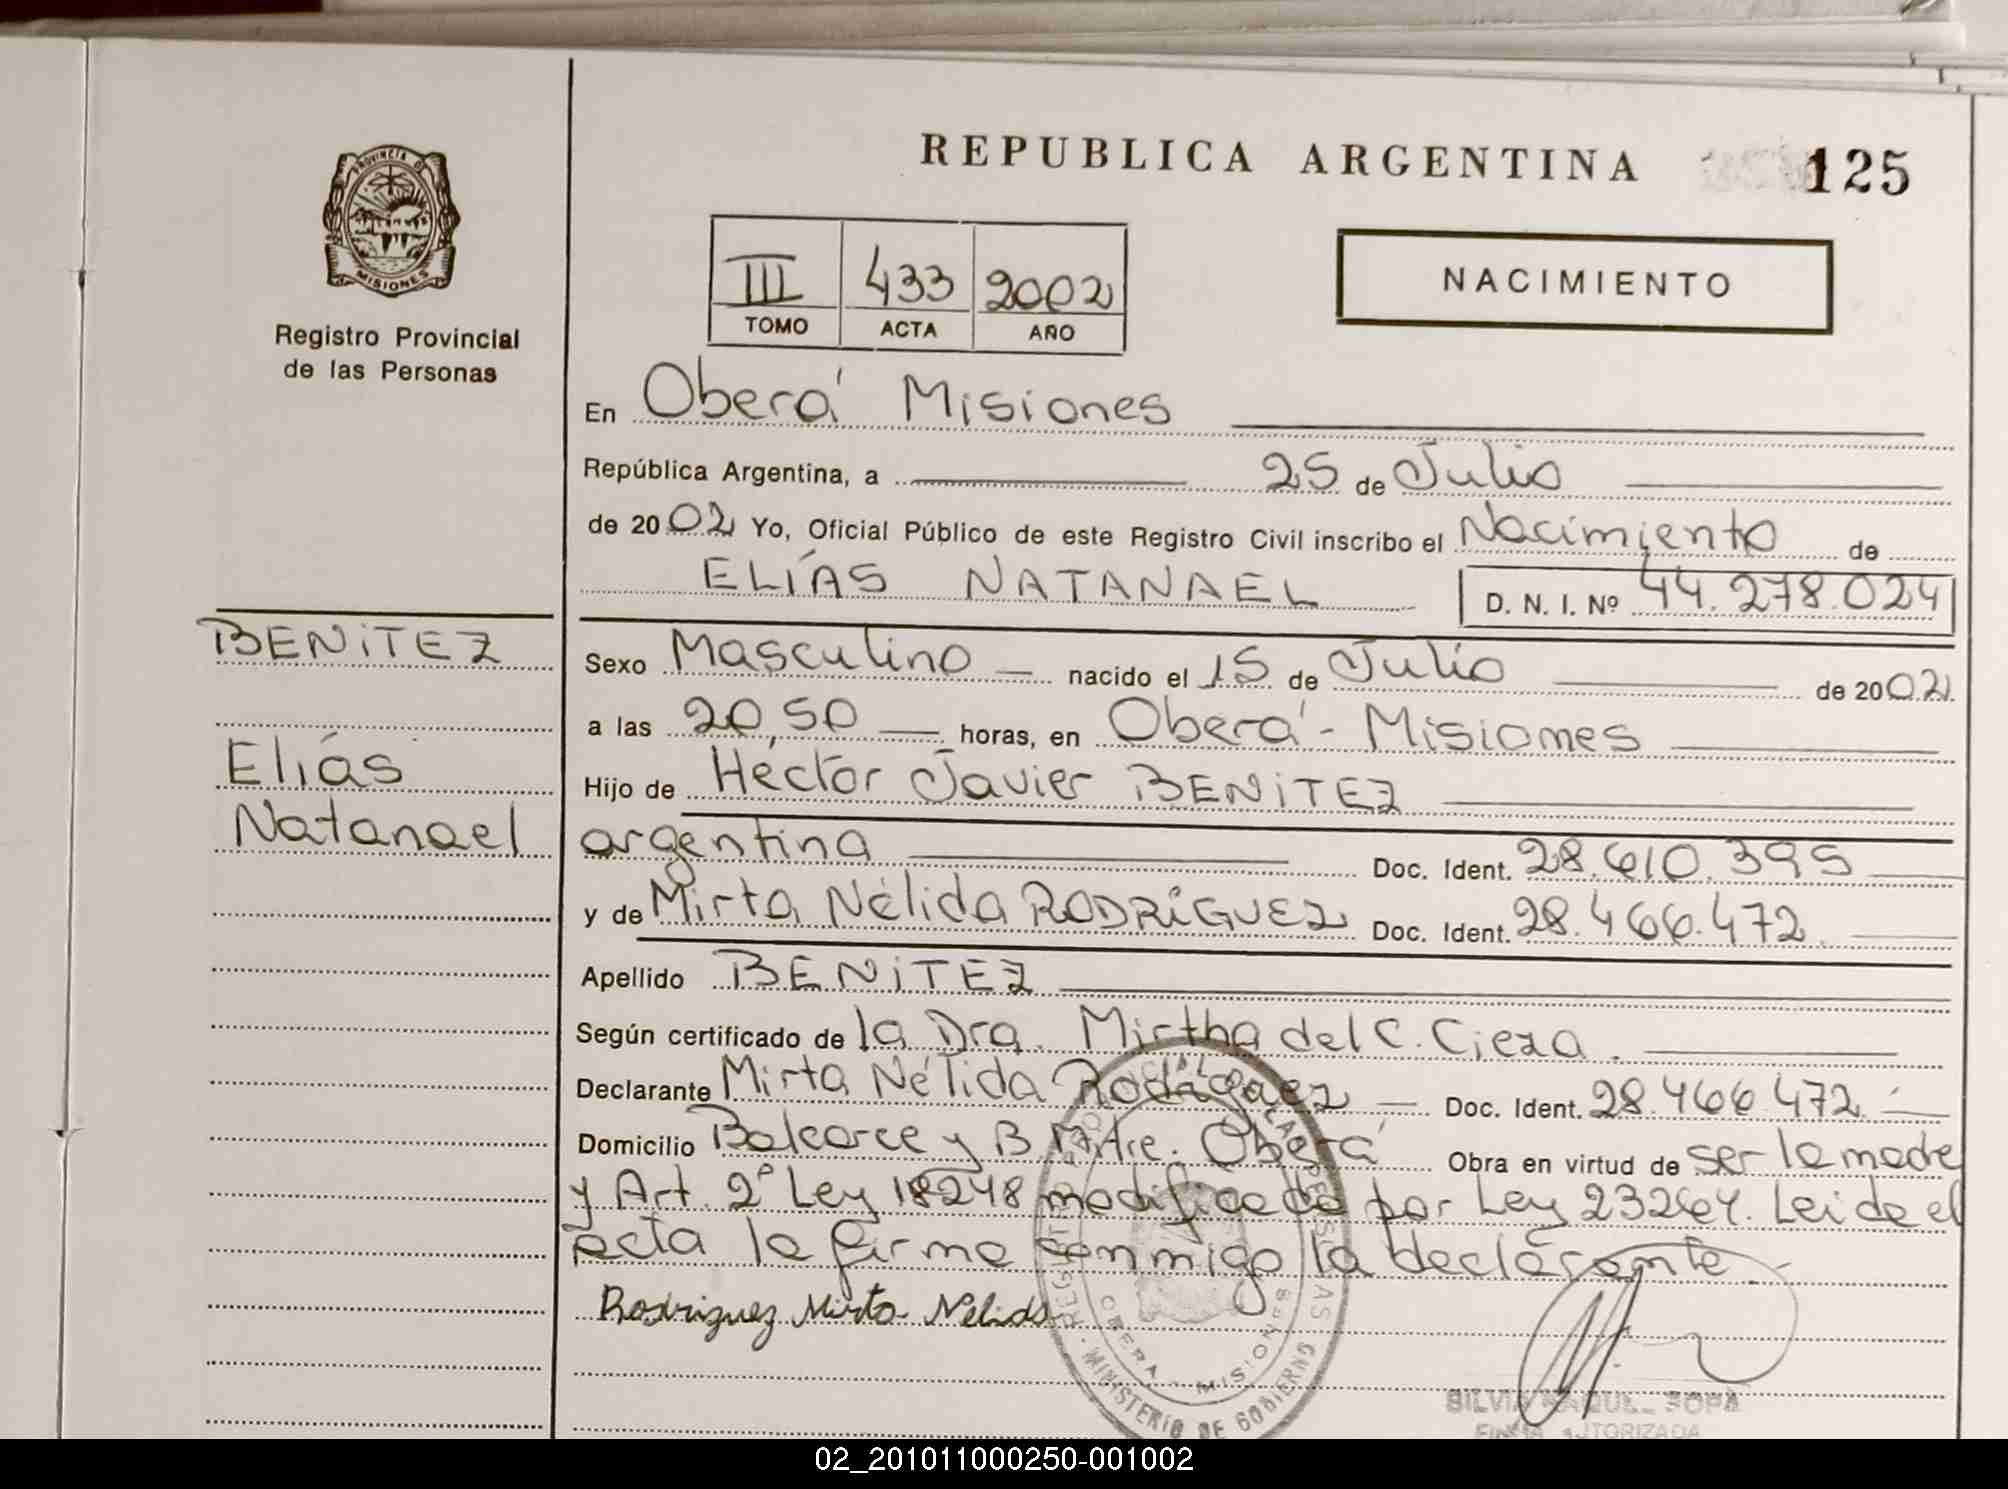 REPUBLICA ARGENTINA
125
PROVINCIA DE
MISIONES
Registro Provincial
de las Personas
III 433 2002
TOMO ACTA AÑO
NACIMIENTO
En Oberá Misiones
República Argentina, a 25 de Julio
de 2002 Yo, Oficial Público de este Registro Civil inscribo el Nacimiento de
ELÍAS NATANAEL D. N. I. Nº 44.278.024
BENiTEZ
Elías
Natanael
Sexo Masculino nacido el 15 de Julio de 2002
a las 20,50 horas, en Oberá - Misiones
Hijo de Héctor Javier BENiTEZ
argentina Doc. Ident. 28.610.395
y de Mirta Nélida RODRÍGUEZ Doc. Ident. 28.466.472.
Apellido BENiTEZ
Según certificado de la Dra. Mirtha del C. Cieza.
Declarante Mirta Nélida Rodríguez Doc. Ident. 28.466.472.
Domicilio Balcarce y B. Mitre. Oberá Obra en virtud de ser la madre
y Art. 2º Ley 18248 modificada por Ley 23264. Leida el
acta la firma conmigo la declarante.
Rodriguez Mirta Nélida
MINISTERIO DE GOBIERNO
OBERA - MISIONES
SILVIA RAQUEL SOPA
FIRMA AUTORIZADA
02_201011000250-001002